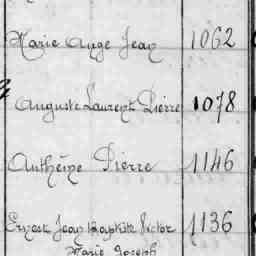 Marie Ange Jean 1062
Auguste Laurent Pierre 1078
Anthème Pierre 1146
Ernest Jean Baptiste Victor 1136
Marie Joseph